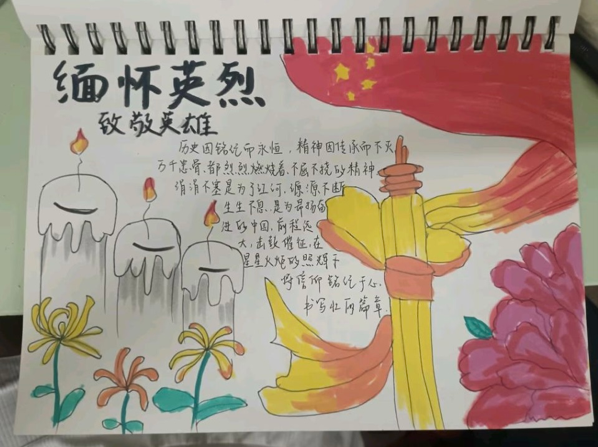 缅怀英烈
致敬英雄
历史因铭记而永恒，精神因传承而不灭
万千忠骨，都烈烈燃烧着，不屈不挠的精神
涓涓不塞是为了江河，源源不断
生生不息，是为昂扬奋
进的中国，前程远
大，击鼓催征，在
星星火炬的照耀下
将信仰铭记于心，
书写壮丽篇章。